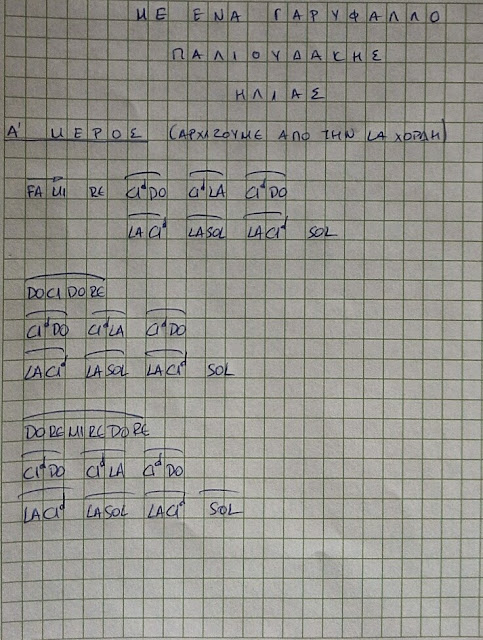 ΜΕ ΕΝΑ ΓΑΡΥΦΑΛΛΟ
ΠΑΛΙΟΥΔΑΚΗΣ
ΗΛΙΑΣ
Α' ΜΕΡΟΣ (ΑΡΧΙΖΟΥΜΕ ΑΠΟ ΤΗΝ LA ΧΟΡΔΗ)
FA MI RE CIᵈDO CIᵈLA CIᵈDO
LACIᵈ LASOL LACIᵈ SOL
DOCIDORE
CIᵈDO CIᵈLA CIᵈDO
LACIᵈ LASOL LACIᵈ SOL
DOREMIREDORE
CIᵈDO CIᵈLA CIᵈDO
LACIᵈ LASOL LACIᵈ SOL